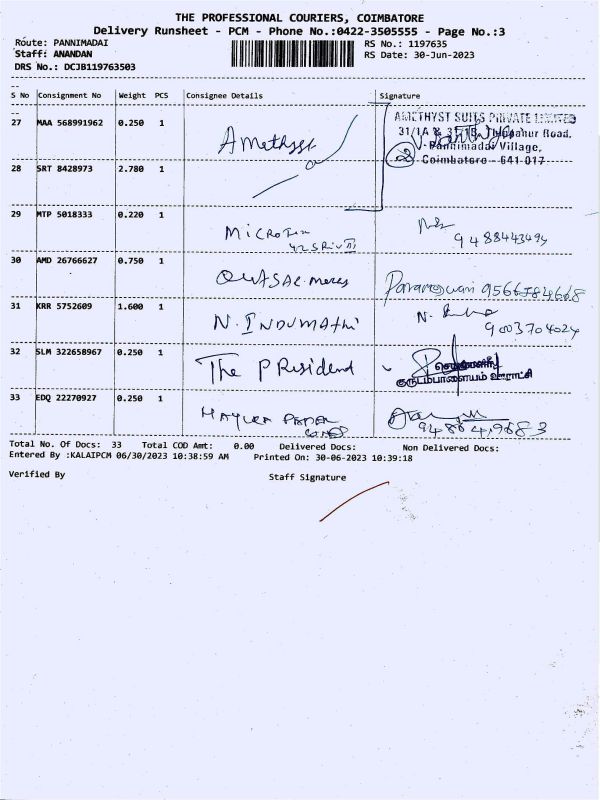 THE PROFESSIONAL COURIERS, COIMBATORE
Delivery Runsheet - PCM - Phone No.:0422-3505555 - Page No.:3
Route: PANNIMADAI
RS No.: 1197635
Staff: ANANDAN
RS Date: 30-Jun-2023
DRS No.: DCJB119763503
S No Consignment No Weight PCS Consignee Details Signature
27 MAA 568991962 0.250 1 Amethyst
AMETHYST SUITS PRIVATE LIMITED
Road,
Pannimadai Village,
Coimbatore - 641 017
28 SRT 8428973 2.780 1
29 MTP 5018333 0.220 1
9488443494
30 AMD 26766627 0.750 1
Parameswari 9566584668
31 KRR 5752609 1.600 1 N. INDUMAthi N.
9003704024
32 SLM 322658967 0.250 1 The PResident
குருடம்பாளையம் ஊராட்சி
33 EDQ 22270927 0.250 1 MAYURA PAPER
Total No. Of Docs: 33 Total COD Amt: 0.00 Delivered Docs: Non Delivered Docs:
Entered By :KALAIPCM 06/30/2023 10:38:59 AM Printed On: 30-06-2023 10:39:18
Verified By Staff Signature